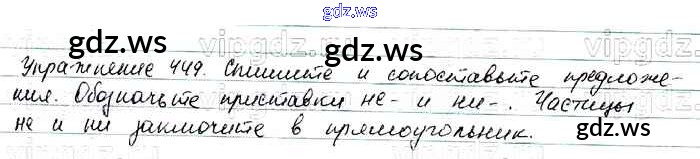 gdz.ws
gdz.ws gdz.ws
vipgdz.ru vipgdz.ru vipgdz.ru
Упражнение 449. Спишите и сопоставьте предложе-
ния. Обозначьте приставки не- и ни-. Частицы
не и ни заключите в прямоугольник.
gdz.ws gdz.ws